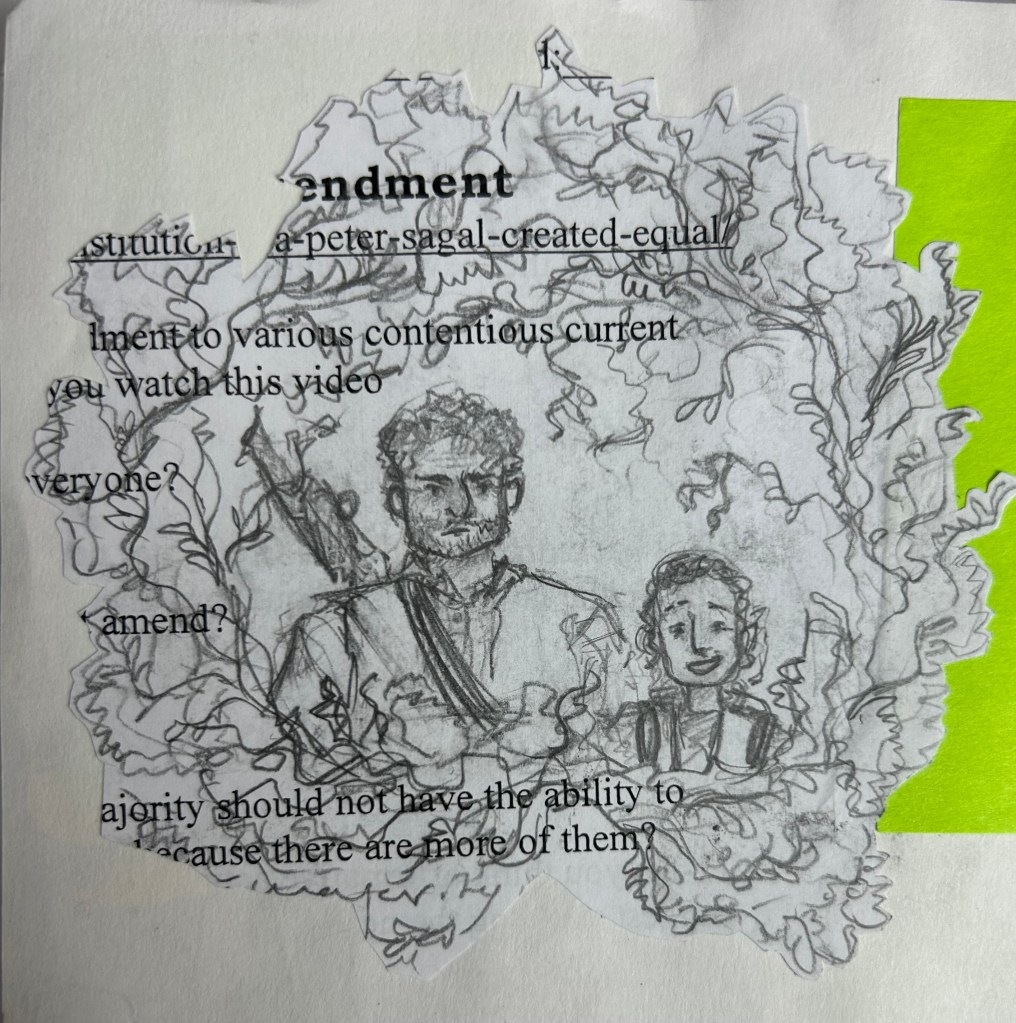 1:
endment
stitution- a-peter-sagal-created-equal/
dment to various contentious current
you watch this video
veryone?
amend?
ajority should not have the ability to
because there are more of them?